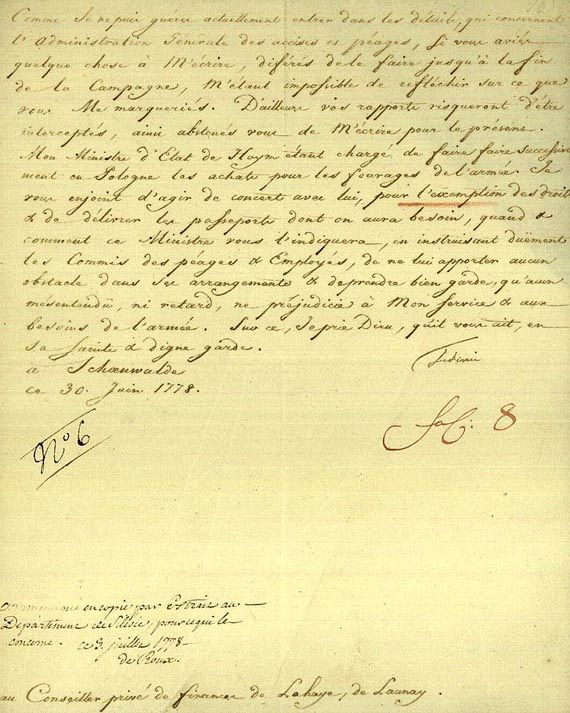 Comme Je ne puis guère actuellement entrer dans les détails, qui concernent
l'administration Générale des accises et péages, Si vous aviés
quelque chose à M'écrire, diférés de le faire jusqu'à la fin
de la Campagne, M'étant impossible de refléchir sur ce que
vous Me marqueriés. D'ailleurs vos rapports risqueront d'être
interceptés, ainsi abstenés vous de M'écrire pour le présent.
Mon Ministre d'Etat de Hoym étant chargé de faire faire successive
ment en Pologne les achats pour les fourages de l'armée. Je
vous enjoint d'agir de concert avec lui, pour l'exemption des droits
& de délivrer les passeports dont on aura besoin, quand &
comment ce Ministre vous l'indiquera, en instruisant duëment
les Commis des péages & Employés, de ne lui apporter aucun
obstacle dans ses arrangements & de prendre bien garde, qu'aucun
mésentendu, ni retard, ne préjudicie à Mon service & aux
besoins de l'armée. Sur ce, Je prie Dieu, qu'il vous ait, en
sa sainte & digne garde.
à Schoenwalde
ce 30. Juin 1778.
Federic
8
No 6
en copie par Extrait au
Departement de Silésie, pour ce qui le
concerne. ce 9. juillet 1778
au Conseiller privé de finances de Lahaye, de Launay.